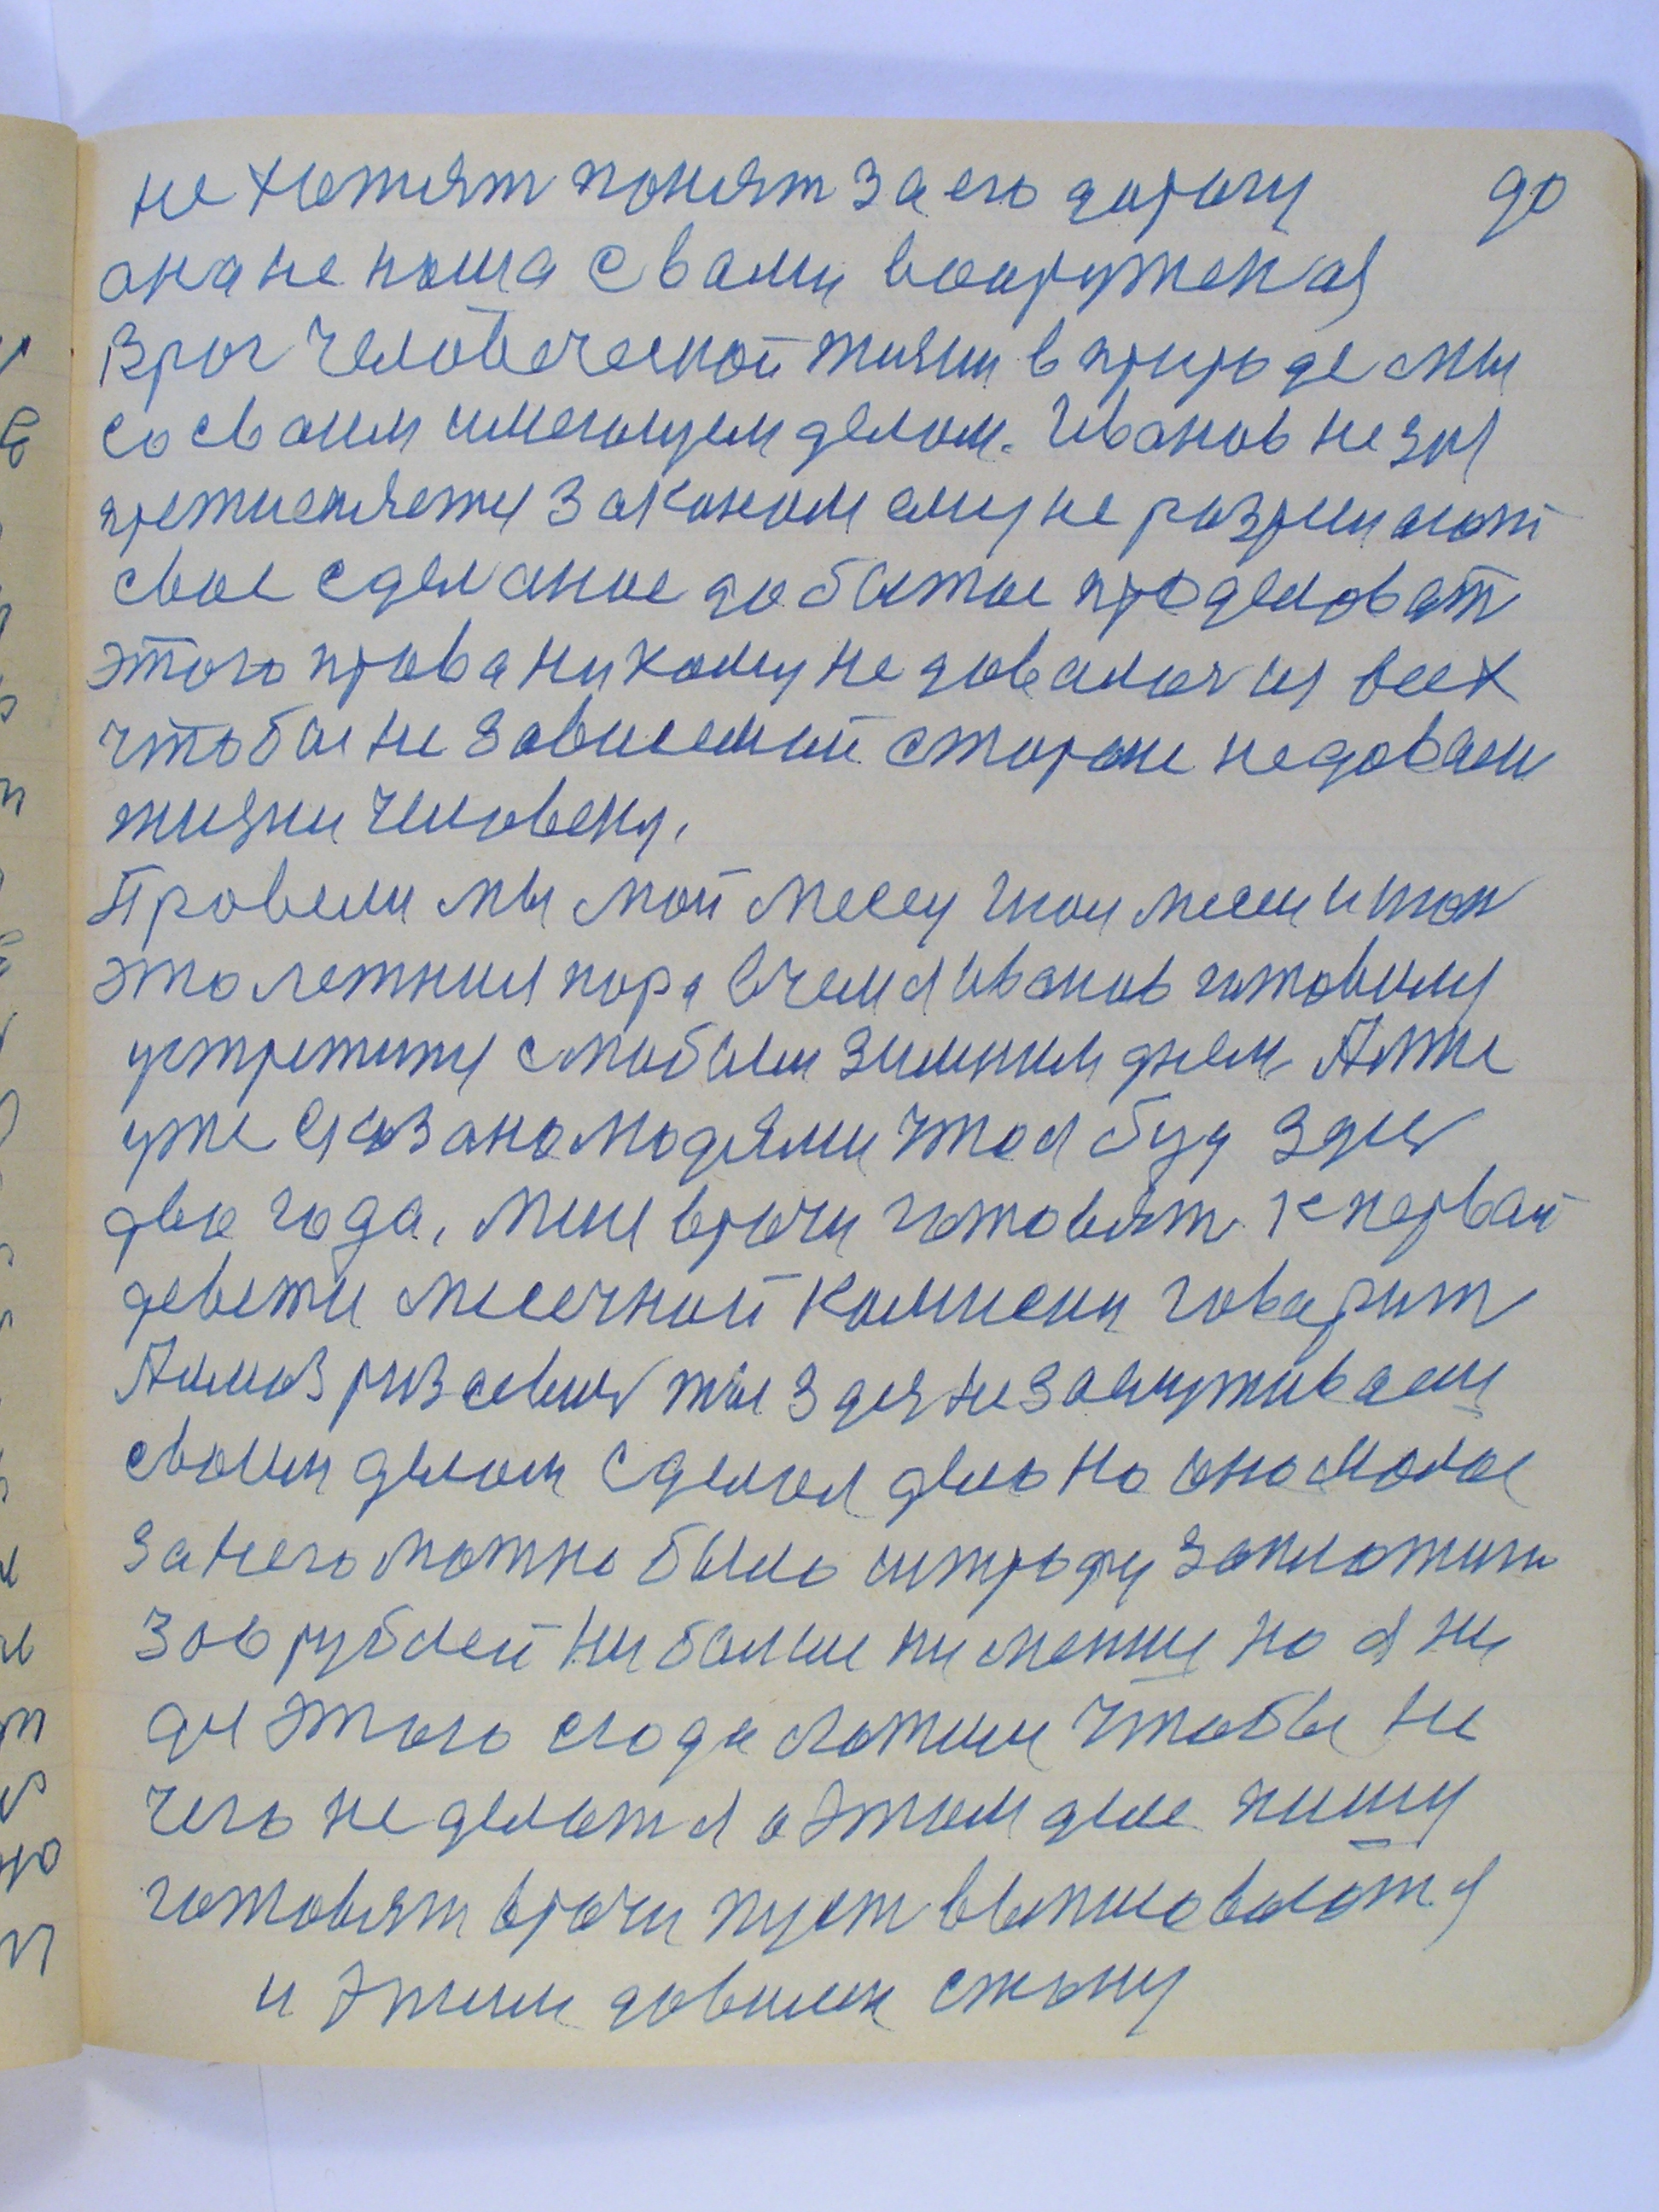 не хотят понят за его дорогу 90
она не наша с вами вооруженая
Врог человеческой жизни в природе мы
со своим имеющем делом. Иванов не зря
притисняетя законом ему не разришают
свое сделаное добытое проделоват
этого права никому не довалось из всех
чтобы не зависемой стороне не довали
жизни человеку.
Провели мы май месец июн месец июл
это летния пора в чем я Иванов готовлюу
устретитя с любым зимним днем. А мне
уже сказано людями что я буд здес
два года, мене врачи готовят к первай
девети месечной комисии говарит
ты здес не заслуживаеш
своим делом сделал дело но оно малое
за него можно было штрафу заплотит
300 рублей ни болше ни менше но я не
дл этого сюда ложили чтобы не
чего не делат я о этом деле пишу
готовят врачи пуст выписоваютя
и этим